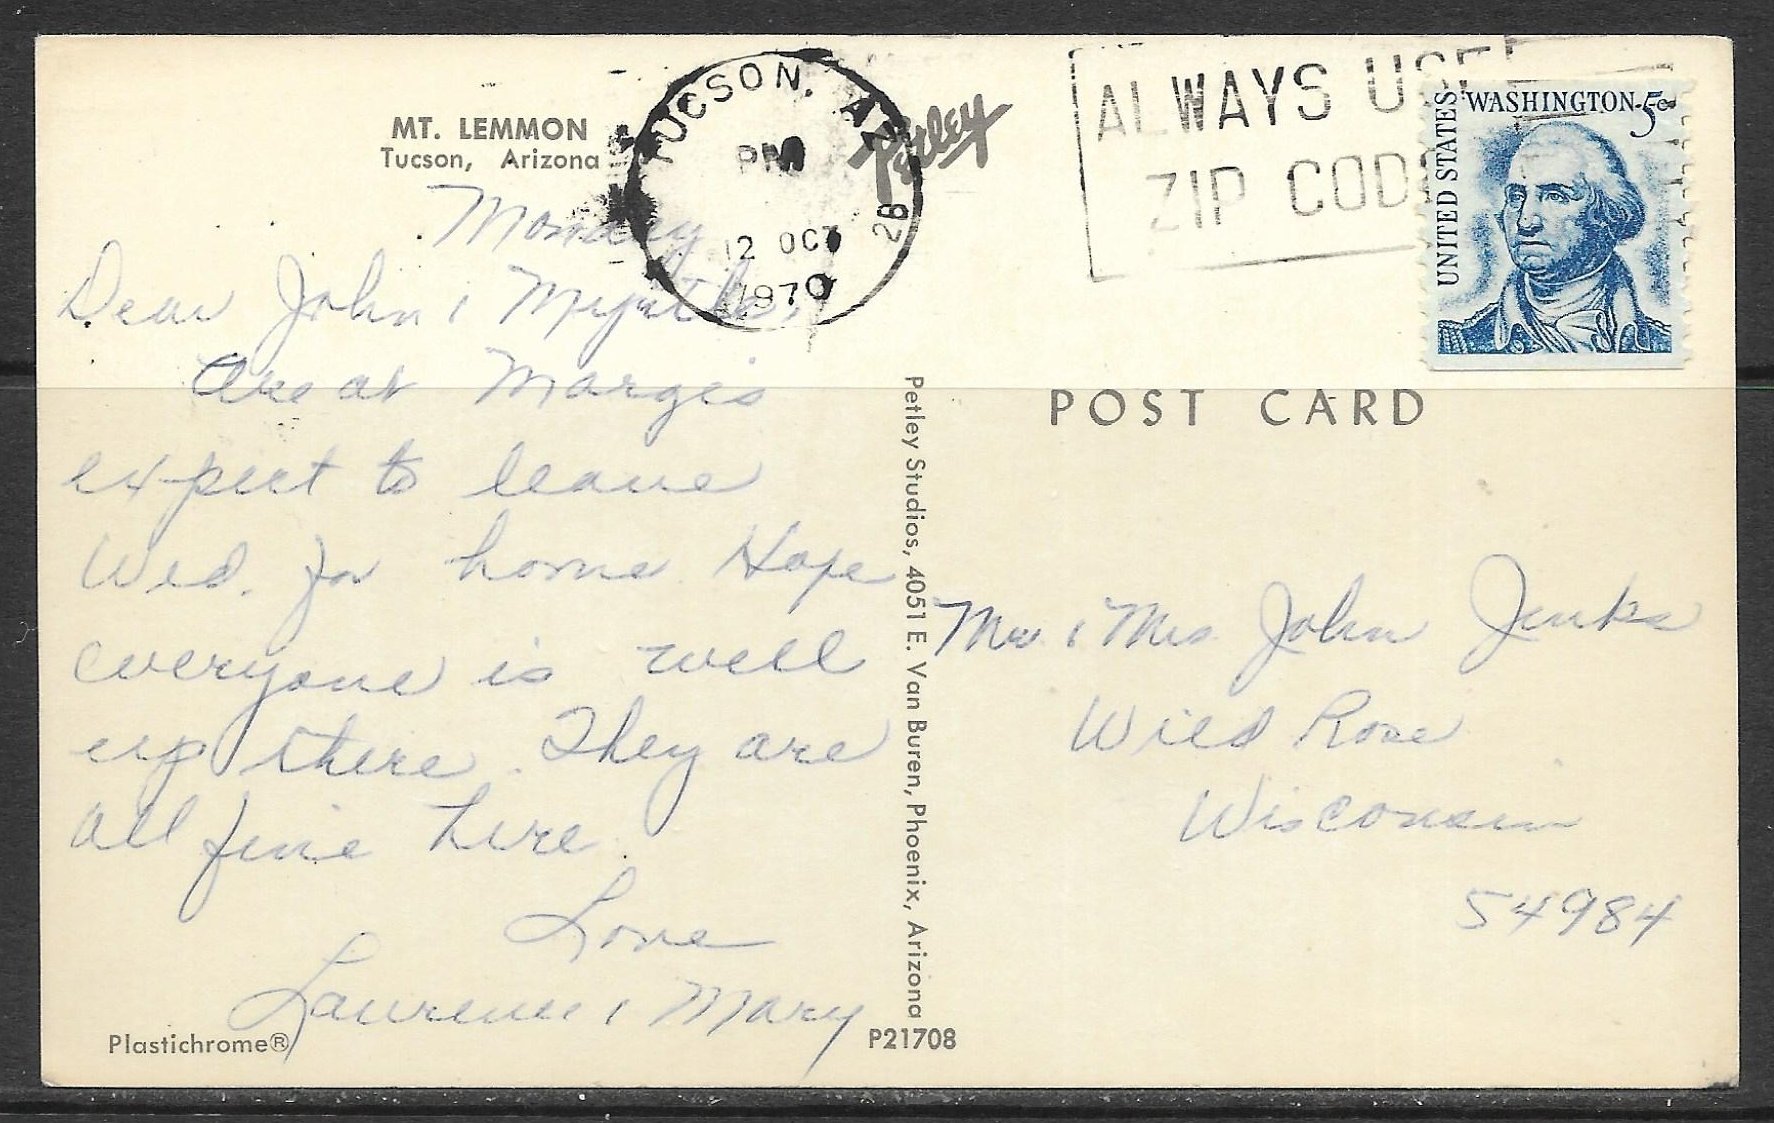 MT. LEMMON
Tucson, Arizona
TUCSON, AZ
PM
12 OCT
1970
28
Petley
ALWAYS USE
ZIP CODE
UNITED STATES
WASHINGTON 5c
Monday
Dear John & Myrtle,
Are at Margis
expect to leave
Wed. for home. Hope
everyone is well
up there. They are
all fine here.
Love
Laurence & Mary
Plastichrome®
Petley Studios, 4051 E. Van Buren, Phoenix, Arizona
P21708
POST CARD
Mr. & Mrs John Jenks
Wild Rose
Wisconsin
54984